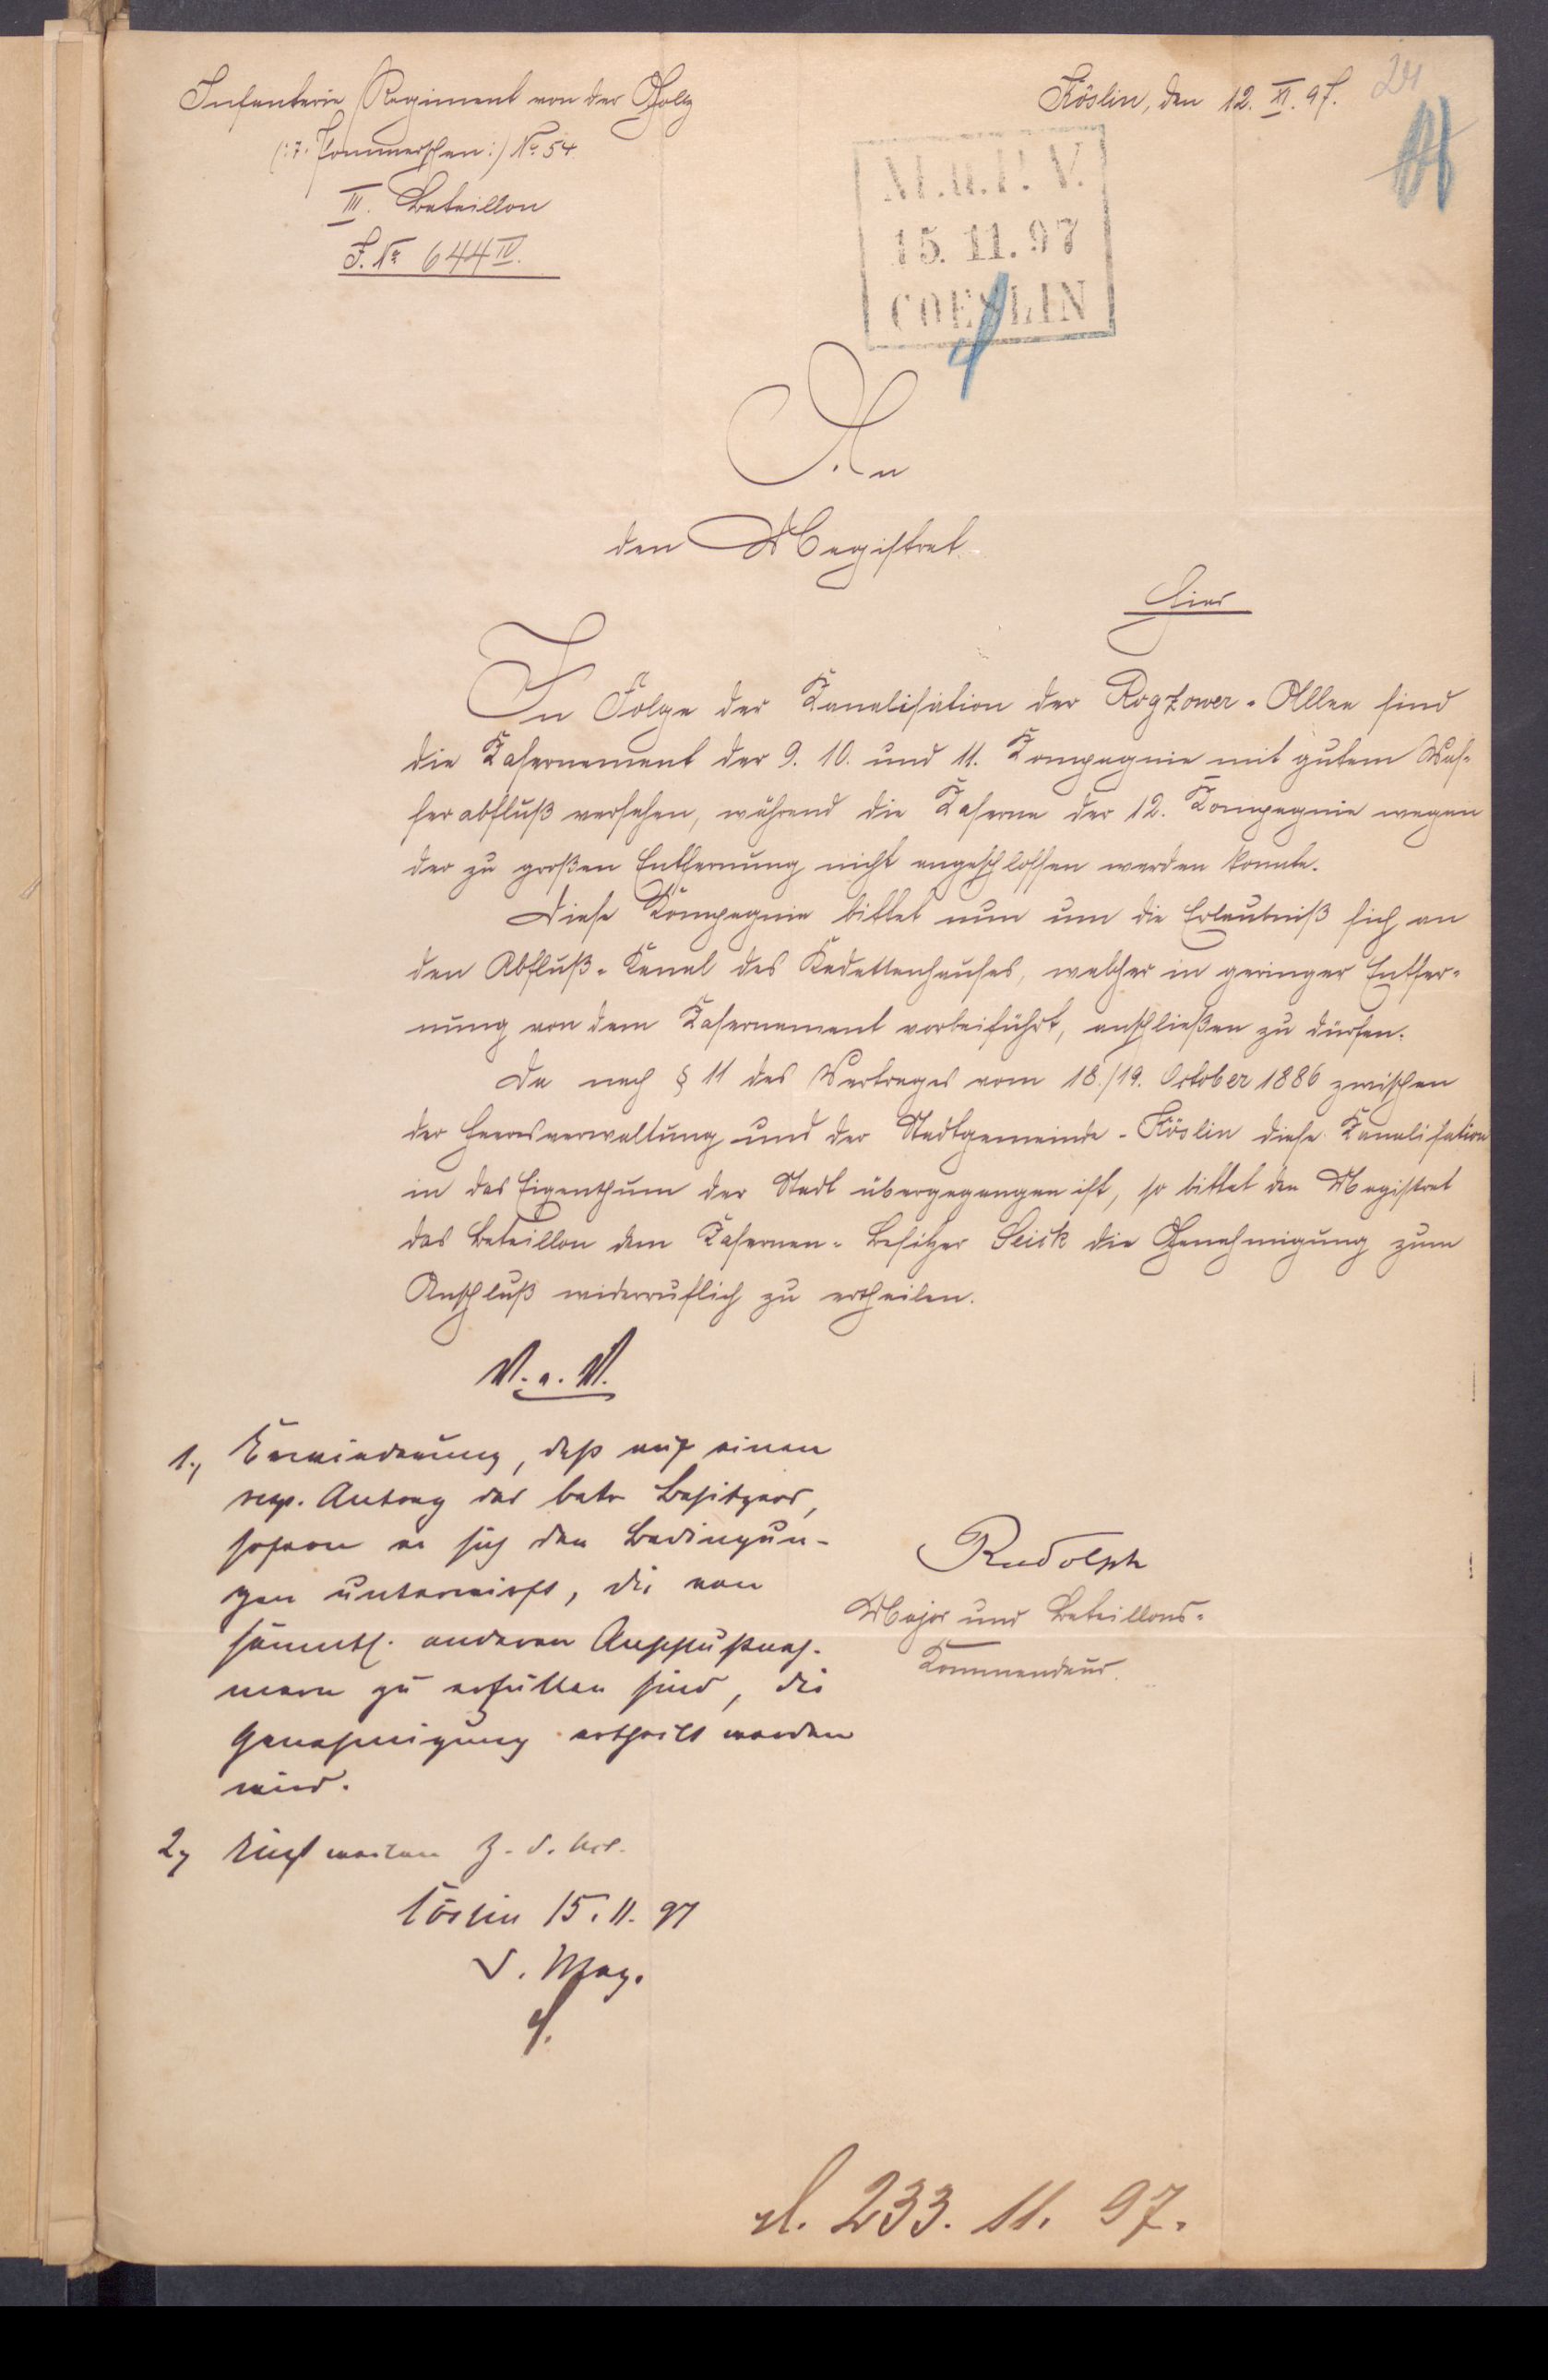 Infanterie Regiment von der Goltz
(:7. Pommersches:) No 54
III. Bataillon
J. No 644 IV.
Köslin, den 12. XI. 97.
24
M.u.P.V.
15.11.97
COESLIN
An
den Magistrat
Hier
In Folge der Kanalisation der Rogzower-Allee sind
die Kasernement der 9. 10. und 11. Kompagnie mit gutem Was-
serabfluß versehen, während die Kaserne der 12. Kompagnie wegen
der zu großen Entfernung nicht angeschlossen werden konnte.
Diese Kompagnie bittet nun um die Erlaubniß sich an
den Abfluß-Kanal des Kadettenhauses, welcher in geringer Entfer-
nung von dem Kasernement vorbeiführt, anschließen zu dürfen.
Da nach § 11 des Vertrages vom 18./19. October 1886 zwischen
der Heeresverwaltung und der Stadtgemeinde-Köslin diese Kanalisation
in das Eigenthum der Stadt übergegangen ist, so bittet den Magistrat
das Bataillon dem Kasernen-Besitzer Seick die Genehmigung zum
Anschluß widerruflich zu ertheilen.
Rudolph
Major und Bataillons-
Kommandeur.
1., Erwiederung, daß auf einen
resp. Antrag des betr Besitzers,
sofern er sich den Bedingun-
gen unterwirft, die von
sämmtl. anderen Anschlußneh-
mern zu erfüllen sind, die
Genehmigung ertheilt werden
wird.
2,
z. d. Act.
Cöslin 15. 11. 97
D. Mag.
233. 11. 97.